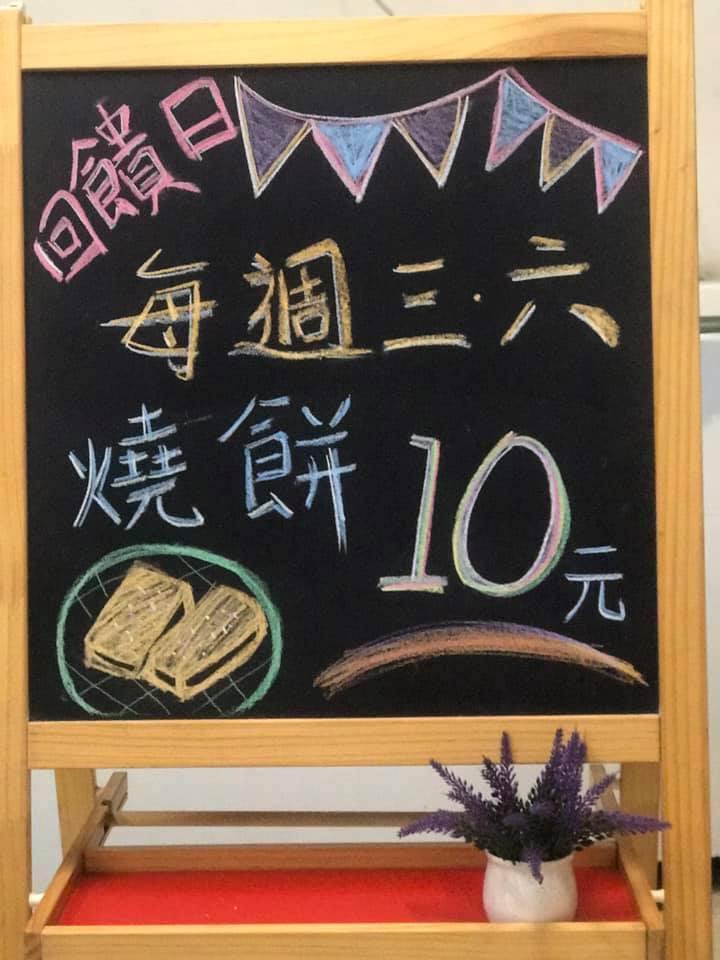 回饋日
每週三·六
燒餅10元